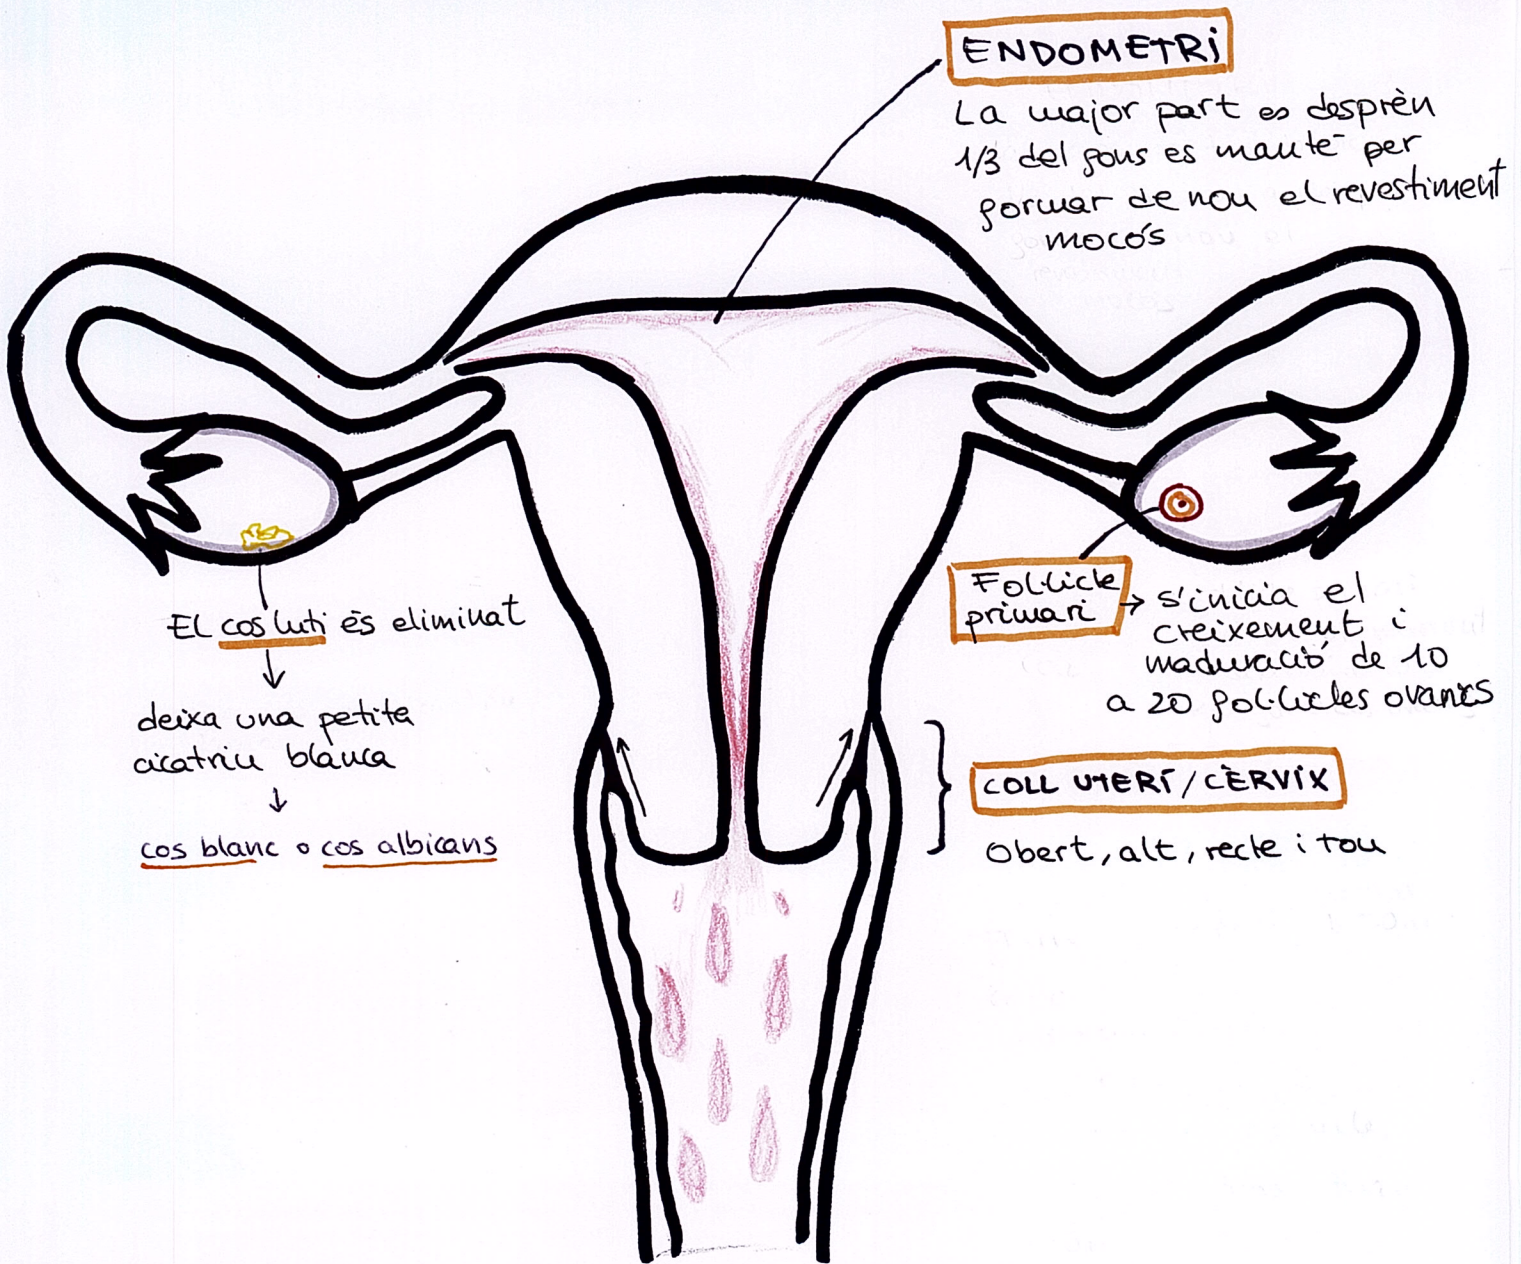 ENDOMETRI
La major part es desprèn
1/3 del fons es manté per
formar de nou el revestiment
mocós
El cos luti és eliminat
↓
deixa una petita
cicatriu blanca
↓
cos blanc o cos albicans
Fol·licle
primari → s'inicia el
creixement i
maduració de 10
a 20 fol·licles ovarics
COLL UTERÍ / CÈRVIX
Obert, alt, recte i tou